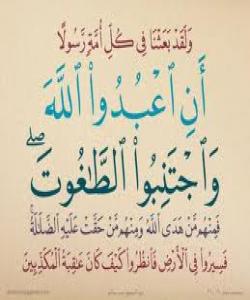 وَلَقَدْ بَعَثْنَا فِي كُلِّ أُمَّةٍ رَّسُولًا
أَنِ ٱعْبُدُوا۟ ٱللَّهَ
وَٱجْتَنِبُوا۟ ٱلطَّٰغُوتَ ۖ
فَمِنْهُم مَّنْ هَدَى ٱللَّهُ وَمِنْهُم مَّنْ حَقَّتْ عَلَيْهِ ٱلضَّلَٰلَةُ ۚ
فَسِيرُوا۟ فِي ٱلْأَرْضِ فَٱنظُرُوا۟ كَيْفَ كَانَ عَٰقِبَةُ ٱلْمُكَذِّبِينَ